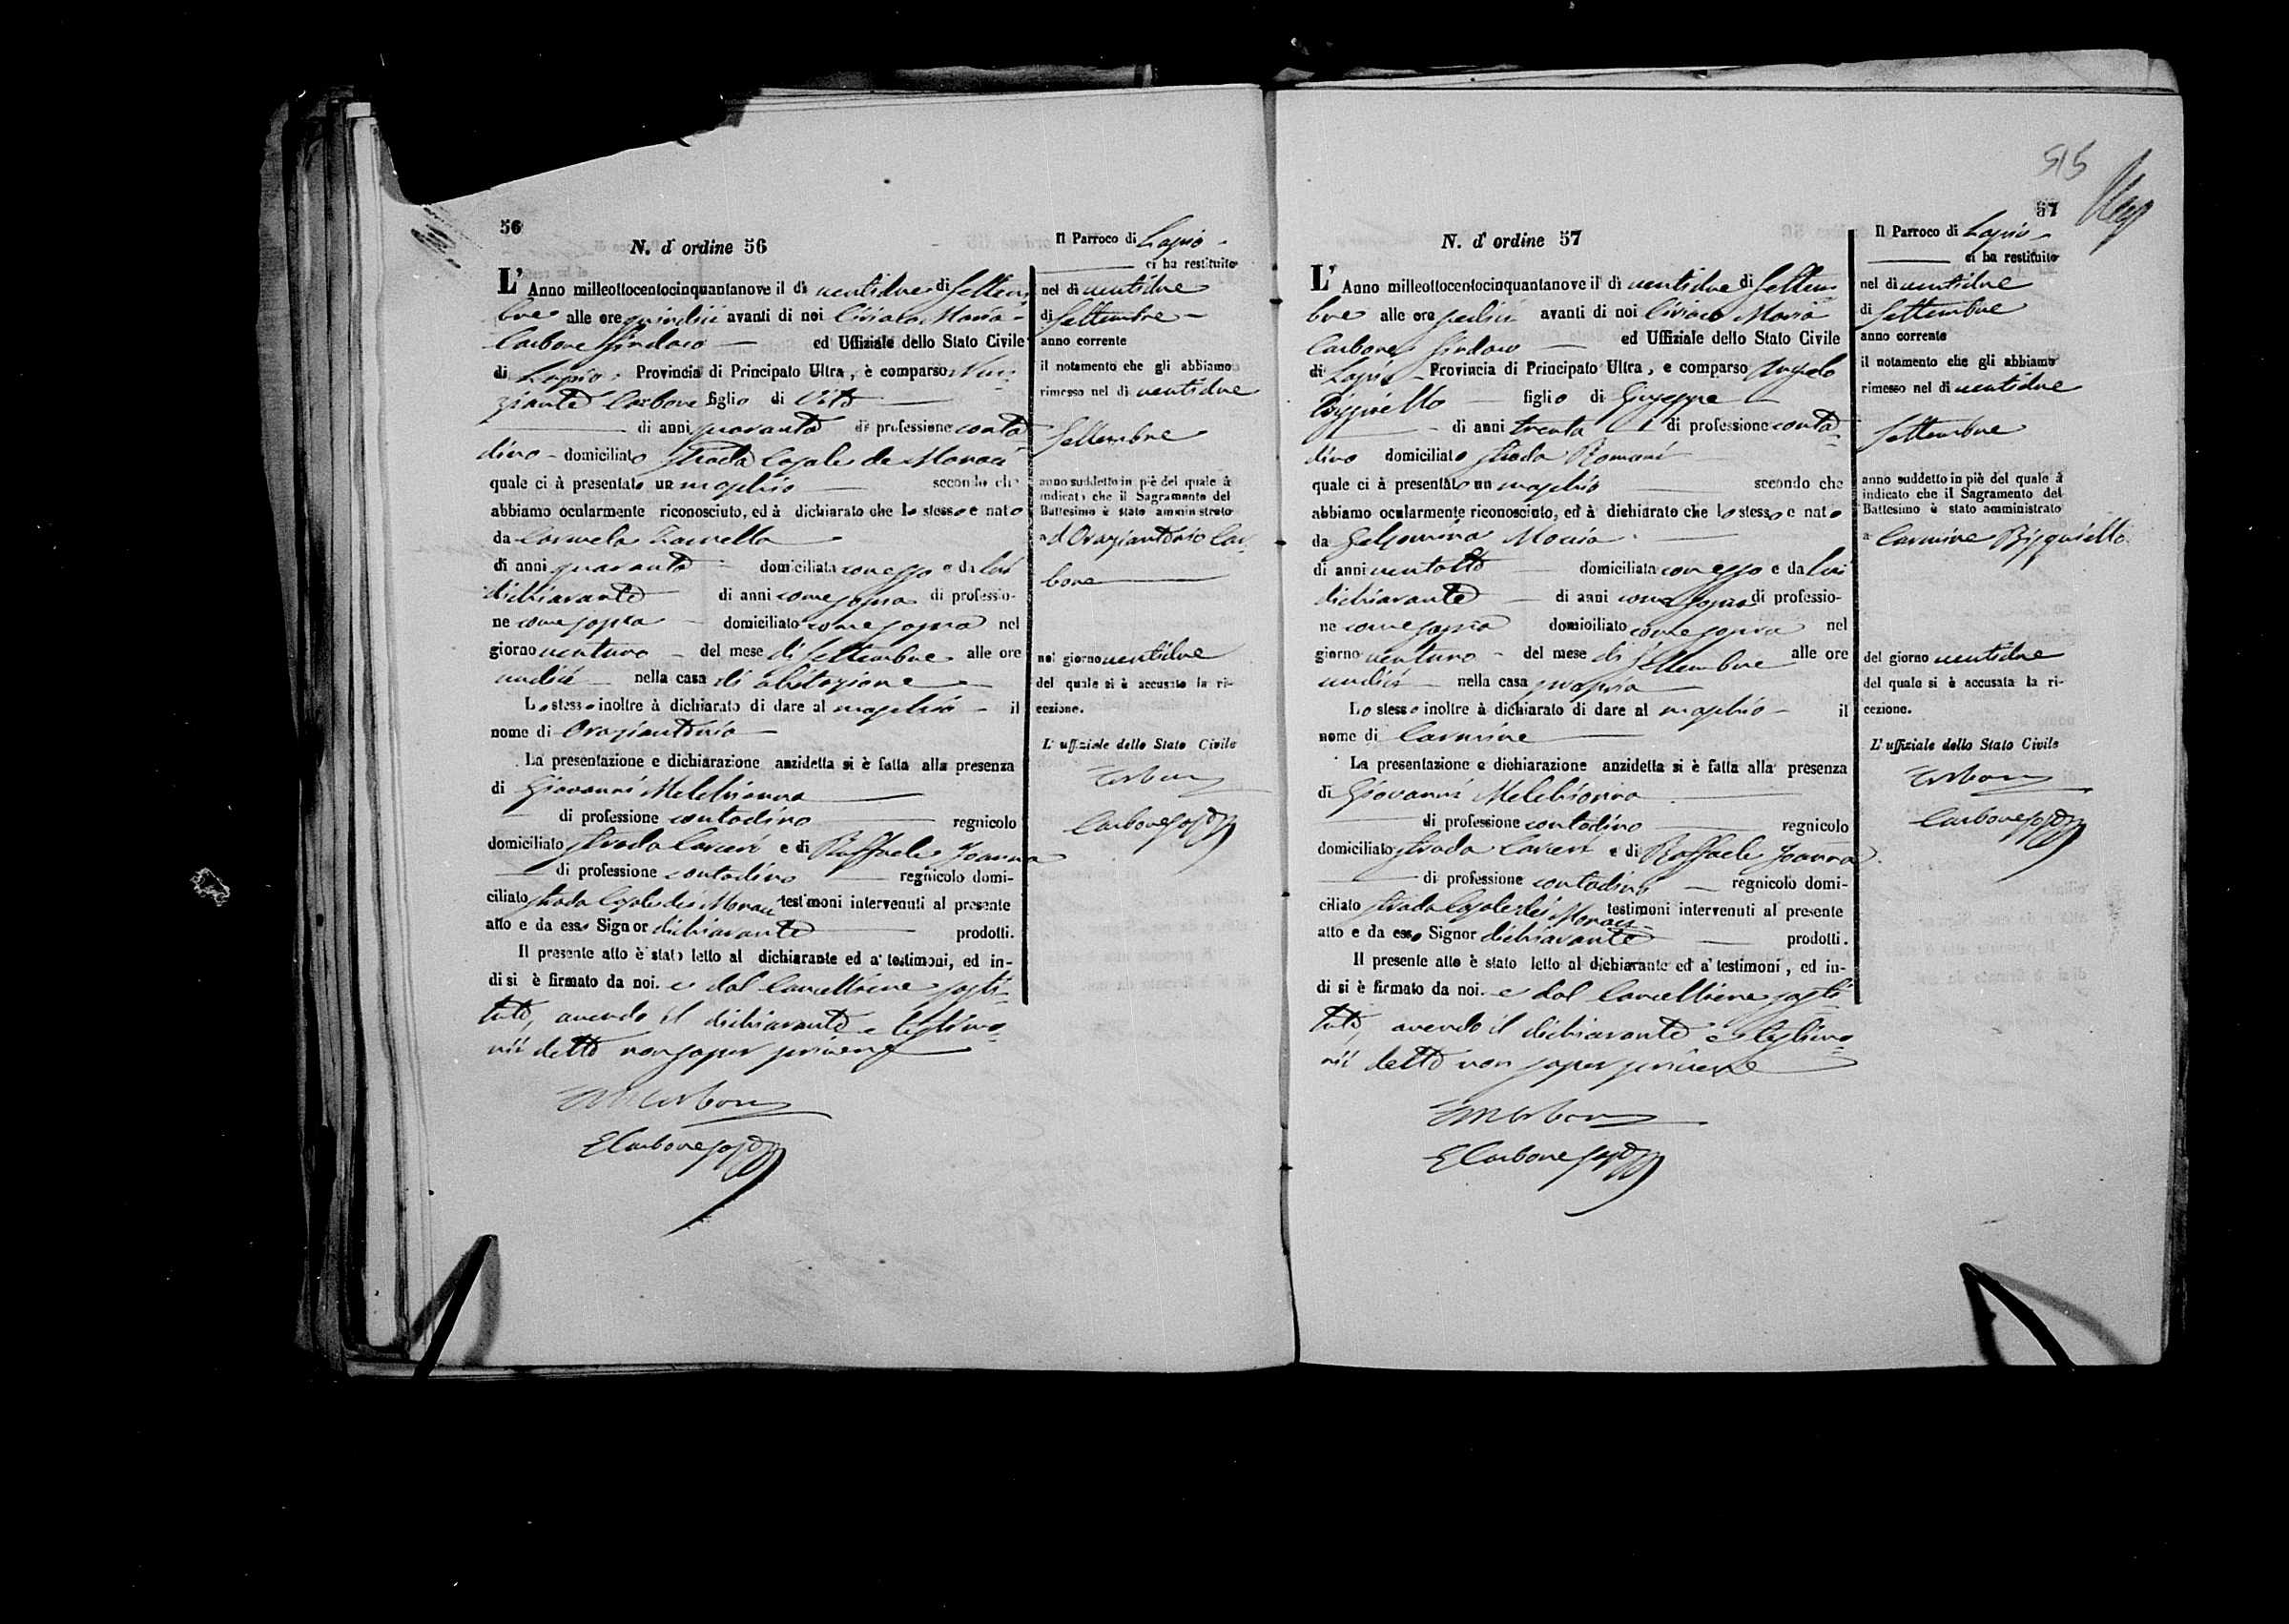 56
N. d' ordine 56
L' Anno milleottocentocinquantanove il dì ventidue di Settem
bre alle ore quindici avanti di noi Ciriaco Maria
Carbone Sindaco ed Uffiziale dello Stato Civile
di Lapio Provincia di Principato Ultra, è comparso Nun
ziante Carbone figlio di Vito
di anni quaranta di professione conta
dino domiciliato strada Casale de Monaci
quale ci à presentato un maschio secondo che
abbiamo ocularmente riconosciuto, ed à dichiarato che lo stesso e nato
da Carmela
di anni quaranta domiciliata con esso e da lui
dichiarante di anni come sopra di professio-
ne come sopra domiciliato come sopra nel
giorno ventuno del mese di Settembre alle ore
undici nella casa di abitazione
Lo stesso inoltre à dichiarato di dare al maschio il
nome di Oraziantonio
La presentazione e dichiarazione anzidetta si è fatta alla presenza
di Giovanni Melchionna
di professione contadino regnicolo
domiciliato strada Carceri e di Raffaele Joanna
di professione contadino regnicolo domi-
ciliato strada Casale dei Monaci testimoni intervenuti al presente
atto e da esso Signor dichiarante prodotti.
Il presente atto è stato letto al dichiarante ed a' testimoni, ed in-
di si è firmato da noi. e dal Cancelliere sosti-
tuto, avendo il dichiarante e testimo-
nii detto non saper scrivere
E Carbone
Il Parroco di Lapio
ci ha restituito
nel dì ventidue
di Settembre
anno corrente
il notamento che gli abbiamo
rimesso nel di ventidue
Settembre
anno suddetto in piè del quale à
indicato che il Sagramento del
Battesimo è stato amministrato
ad Oraziantonio Car-
bone
nel giorno ventidue
del quale si è accusata la ri-
cezione.
L' uffiziale dello Stato Civile
Carbone
515
57
N. d' ordine 57
L' Anno milleottocentocinquantanove il dì ventidue di Settem-
bre alle ore sedici avanti di noi Ciriaco Maria
Carbone Sindaco ed Uffiziale dello Stato Civile
di Lapio Provincia di Principato Ultra, e comparso Angelo
figlio di Giuseppe
di anni trenta di professione conta-
dino domiciliato strada Romani
quale ci à presentato un maschio secondo che
abbiamo ocularmente riconosciuto, ed à dichiarato che lo stesso e nato
da Gelsomina
di anni ventotto domiciliata con esso e da lui
dichiarante di anni come sopra di professio-
ne come sopra domiciliato come sopra nel
giorno ventuno del mese di Settembre alle ore
undici nella casa propria
Lo stesso inoltre à dichiarato di dare al maschio il
nome di Carmine
La presentazione e dichiarazione anzidetta si è fatta alla presenza
di Giovanni Melchionna
di professione contadino regnicolo
domiciliato strada Carceri e di Raffaele Joanna
di professione contadino regnicolo domi-
ciliato strada Casale dei Monaci testimoni intervenuti al presente
atto e da esso Signor dichiarante prodotti.
Il presente atto è stato letto al dichiarante ed a' testimoni, ed in-
di si è firmato da noi. e dal Cancelliere sosti-
tuto, avendo il dichiarante e testimo-
nii detto non saper scrivere
E Carbone
Il Parroco di Lapio
ci ha restituito
nel dì ventidue
di Settembre
anno corrente
il notamento che gli abbiamo
rimesso nel dì ventidue
Settembre
anno suddetto in piè del quale à
indicato che il Sagramento del
Battesimo è stato amministrato
a Carmine
del giorno ventidue
del quale si è accusata la ri-
cezione.
L' uffiziale dello Stato Civile
Carbone